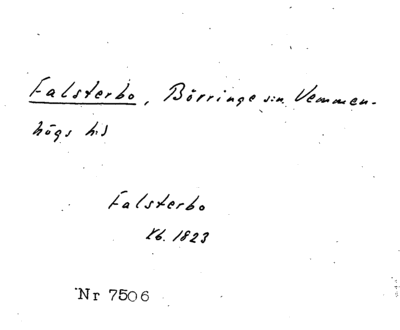 Falsterbo, Börringe sn Vemmen-
högs hd
Falsterbo
Kb. 1823
Nr 7506